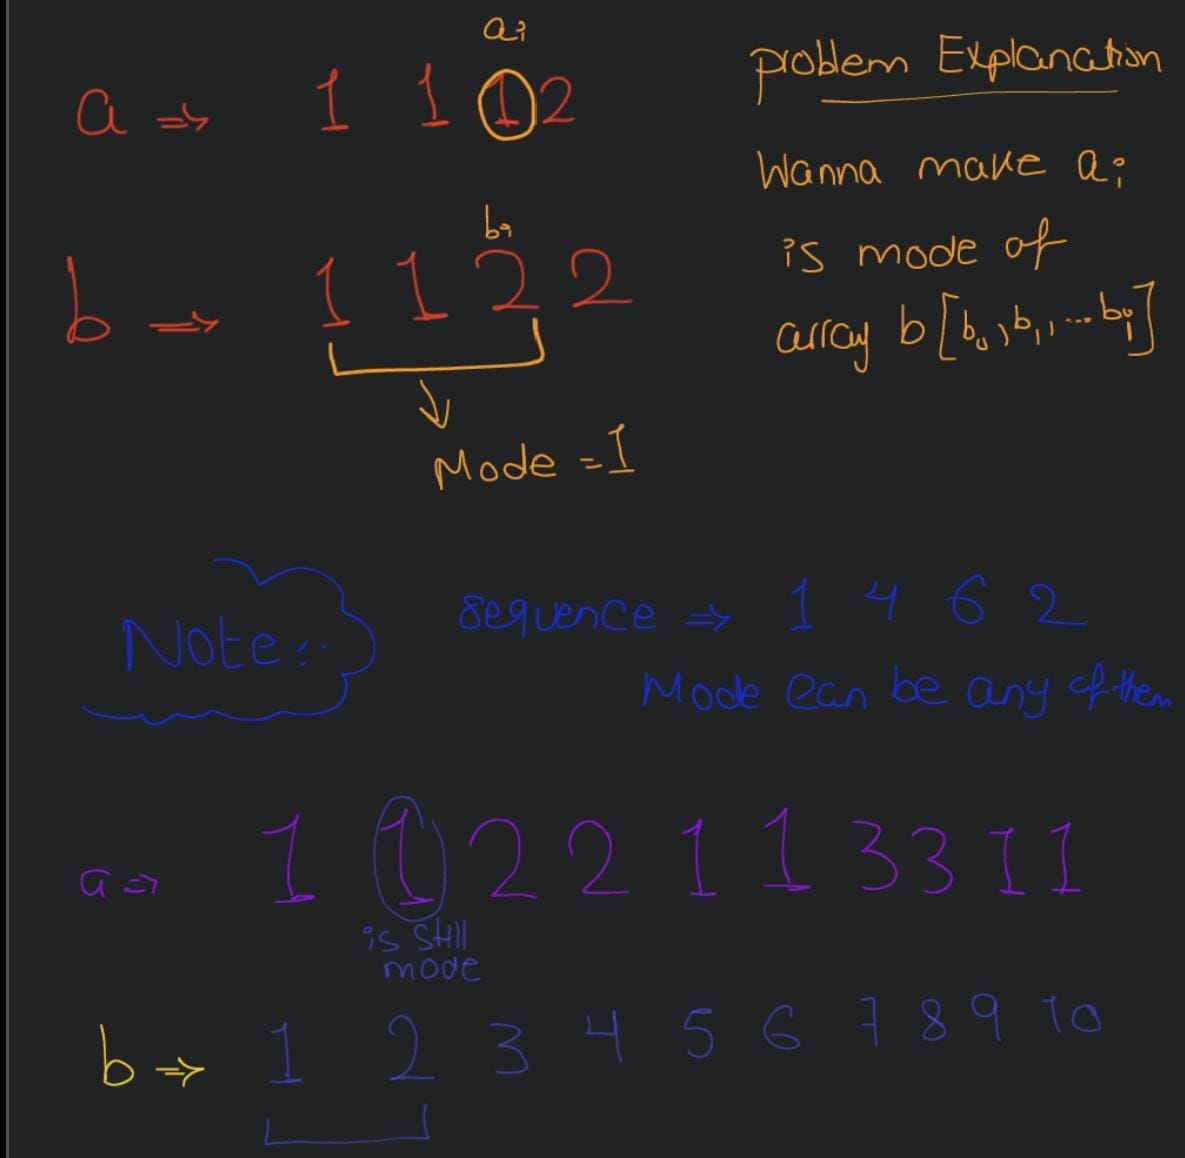 ai
a => 1 1 1 2
problem Explanation
Wanna make ai
is mode of
array b [b0, b1, ... bi]
bi
b => 1 1 2 2
Mode = 1
Note:
sequence => 1 4 6 2
Mode can be any of them
a => 1 1 2 2 1 1 3 3 1 1
is still
mode
b => 1 2 3 4 5 6 7 8 9 10